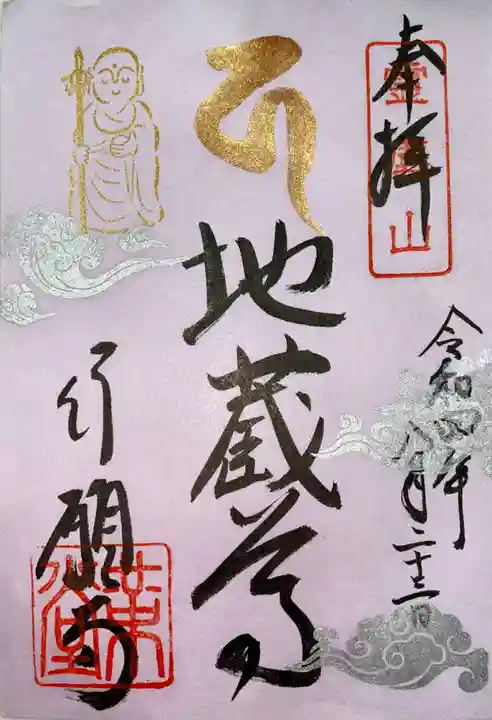 奉拝
靈麀山
令和四年
八月二十二日
地蔵尊
行願寺
革堂